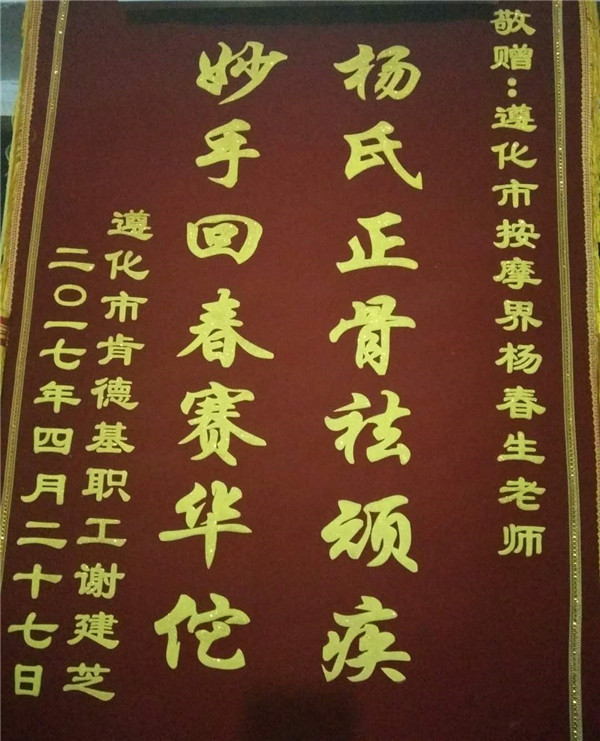 敬赠：遵化市按摩界杨春生老师
杨氏正骨祛顽疾
妙手回春赛华佗
遵化市肯德基职工谢建芝
二〇一七年四月二十七日